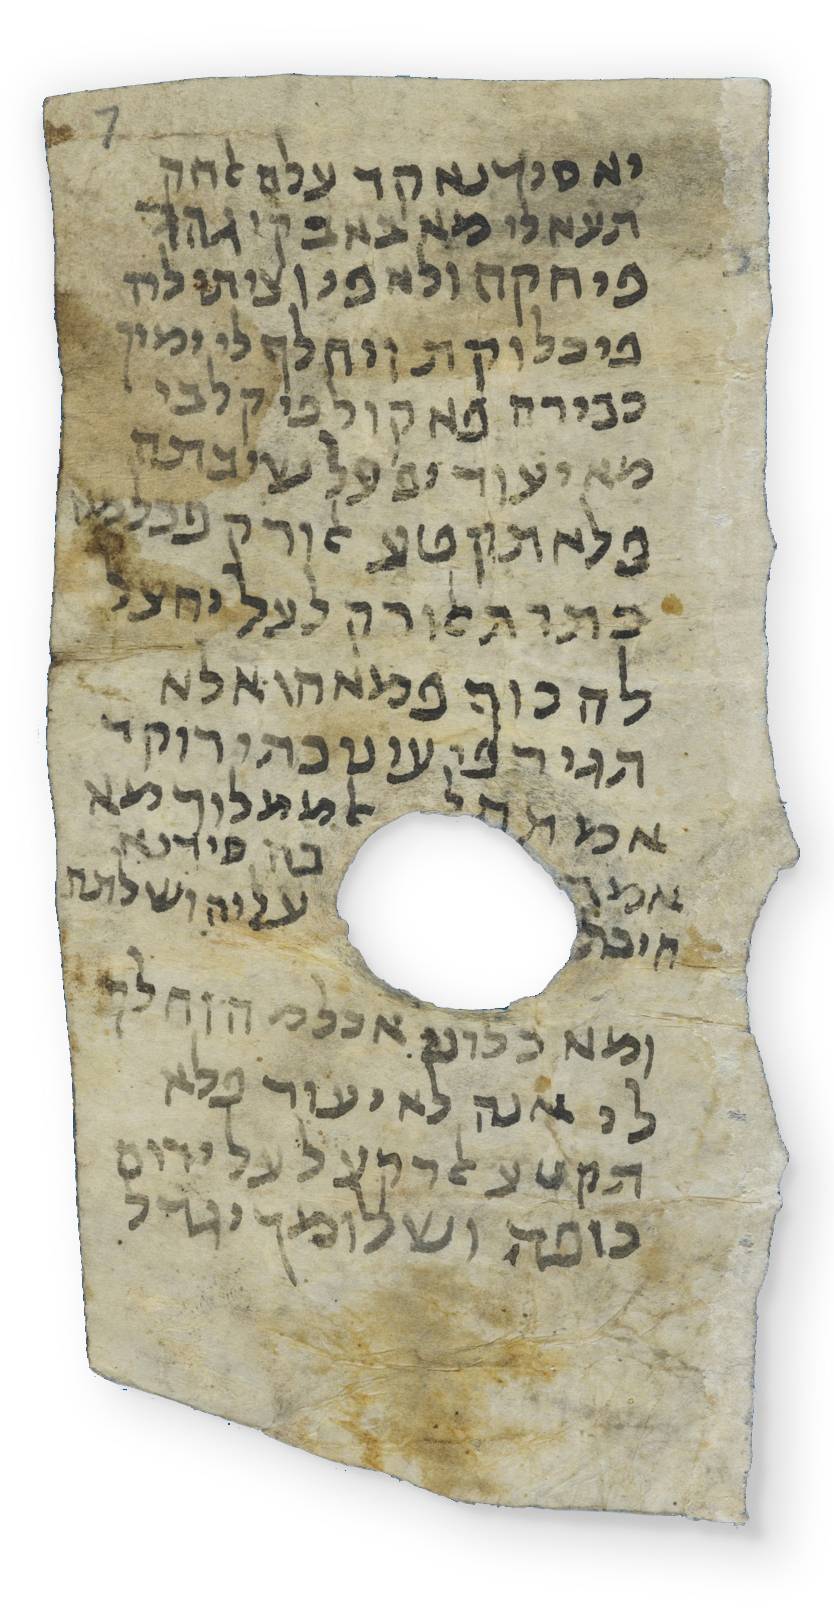 7
יא סידנא קד עלם אלחק
תעאלי מא באב קי גהד
פי חקה ולא פי וציתי לה
פי כל וקת ויחלף לי ימין
כבירה פאקול פי קלבי
מא יעוד יפעל שי בתה
פלא תקטע אלורק פכלמא
כתרת אלורק לעל יחצל
לה כוף פמא הו אלא
תגיר פי עינו כתיר וקד
אמתחל אלממלוך מא
אמר בה סידנא
חיבת עליה ושלתה
ומא כלוני אכלמה וחלף
לי אנה לא יעוד פלא
תקטע אלרקע לעל ידום
כופה ושלומך יגדל